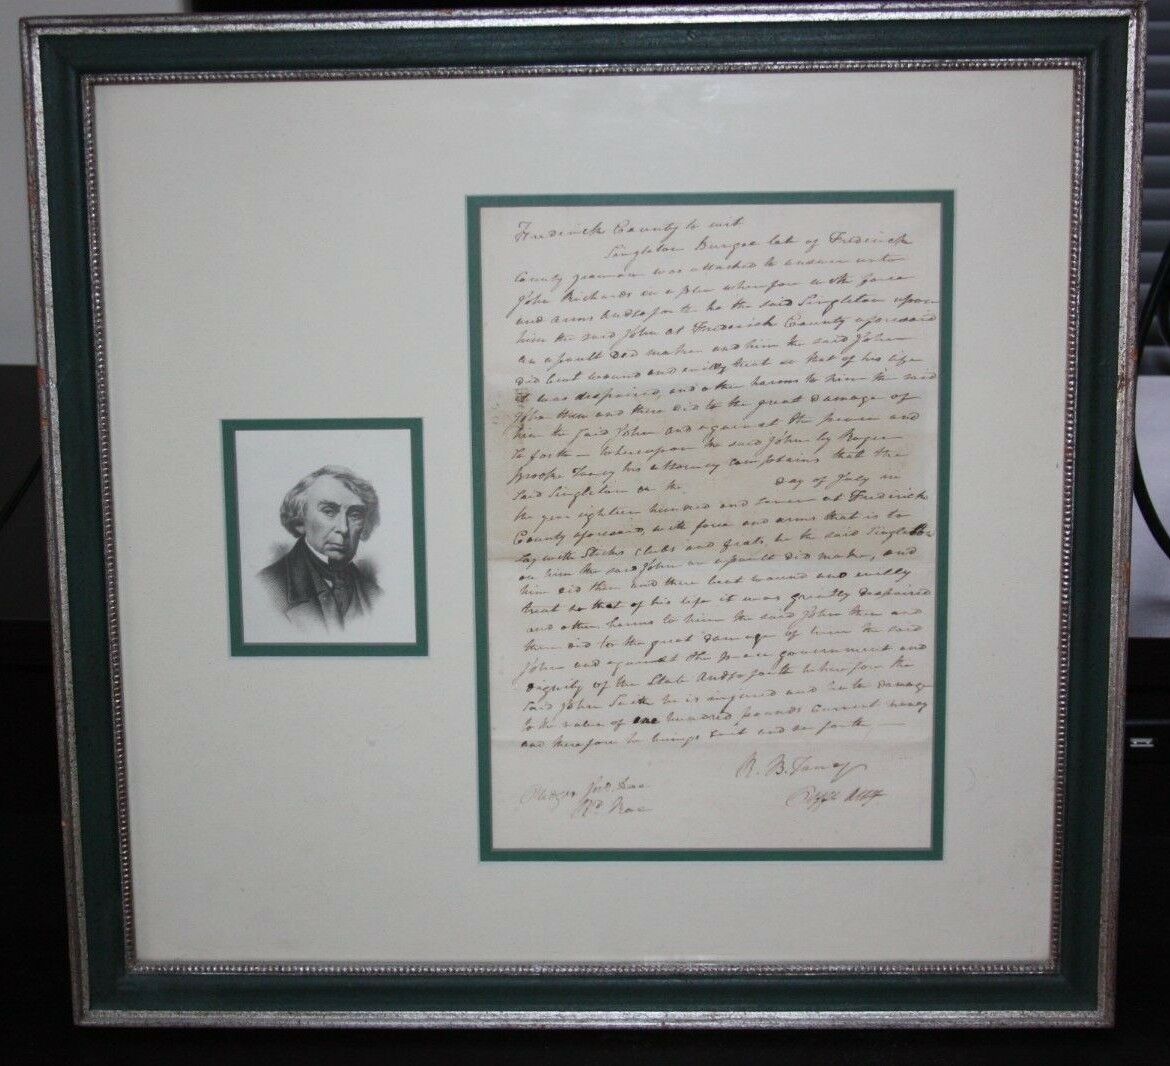 Frederick County to wit
Singleton Burgee late of Frederick
County yeoman was attached to answer unto
John Richards in a plea wherefore with force
and arms &c he the said Singleton upon
him the said John at Frederick County aforesaid
an assault did make and him the said John
did beat wound and evilly treat so that of his life
it was despaired, and other harms to him the said
John then and there did to the great damage of
him the said John and against the peace and
so forth – Whereupon the said John by Roger
Brooke Taney his attorney complains that the
said Singleton on the day of July in
the year eighteen hundred and seven at Frederick
County aforesaid, with force and arms that is to
say with Sticks Clubs and fists, he the said Singleton
on him the said John an assault did make, and
him did then and there beat wound and evilly
treat so that of his life it was greatly despaired
and other harms to him the said John then and
there did to the great damage of him the said
John and against the peace government and
dignity of the State and so forth wherefore the
said John saith he is injured and hath damage
to the value of one hundred pounds current money
and therefore he brings suit and so forth –
R. B. Taney
Pledges Jno. Doe
Rd. Roe